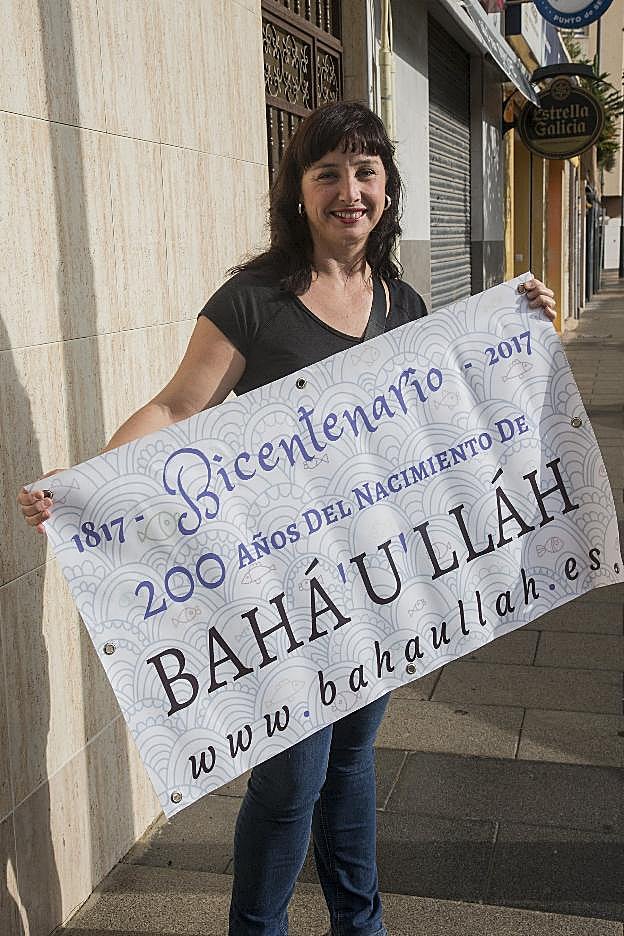 PUNTO DE
Estrella
Galicia
1817 - Bicentenario - 2017
200 Años Del Nacimiento De
BAHÁ'U'LLÁH
www.bahaullah.es